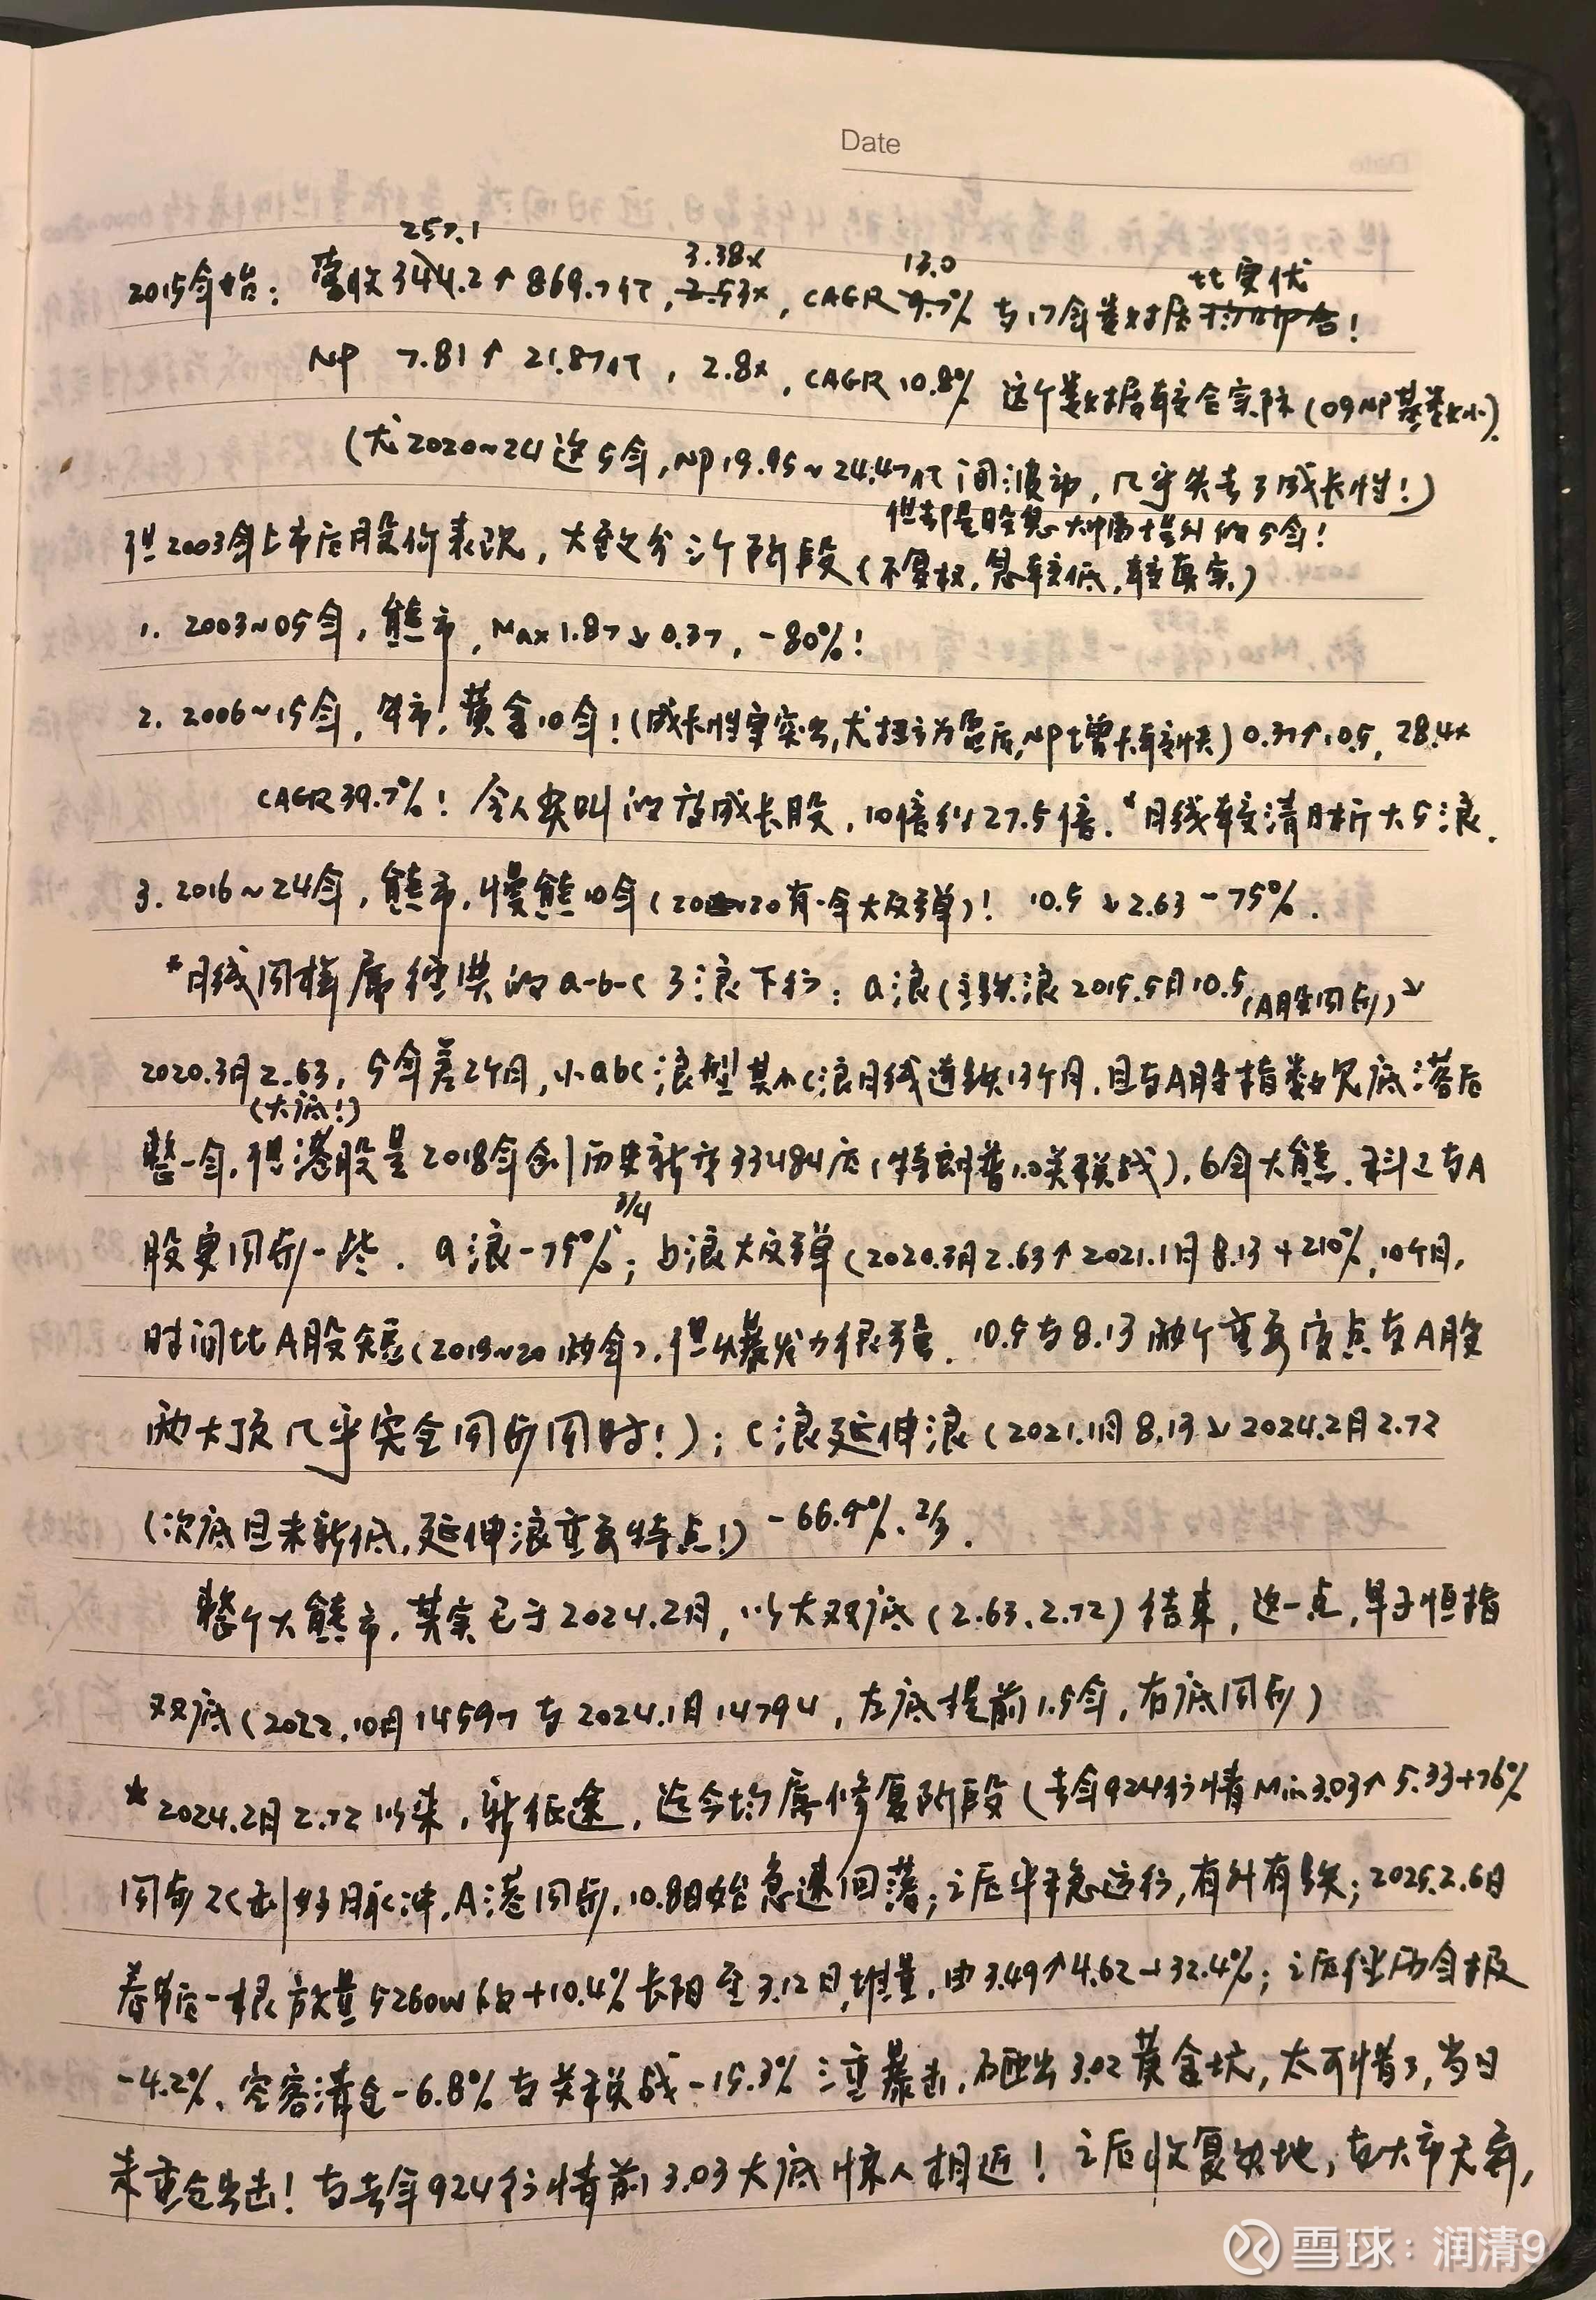 Date
257.1 3.38x 13.0 比更优
2015年始：营收344.2↑869.7亿，2.53x，CAGR 9.7% 与17年数据！
NP 7.81↑21.87亿，2.8x，CAGR 10.8% 这个数据较合实际（09NP基数小）.
（尤2020~24这5年，NP19.95~24.47亿间波动，几乎失去了成长性！）
但却是股息大幅提升的5年！
但2003年上市后股价表现，大致分三个阶段（不复权，息较低，较真实）
1. 2003~05年，熊市，Max 1.87↓0.37，-80%！
2. 2006~15年，牛市，黄金10年！（成长性突出，尤扭亏为盈后，NP增长较快）0.37↑10.5，28.4x
CAGR 39.7%！令人尖叫的成长股，10倍到27.5倍.*月线较清晰大5浪.
3. 2016~24年，熊市，慢熊10年（20有一年大反弹）！ 10.5↓2.63 -75%.
*月线同样属经典的a-b-c 3浪下行：a浪（主跌浪2015.5月10.5（A股同步）↓
2020.3月2.63，5年差2个月，小abc浪型其小c浪月线连跌13个月，且与A股指数见底落后
（大底！）
整一年，但港股是2018年创历史新高33484后（特朗普1.0关税战），6年大熊.科工与A
股更同步一些. a浪-75% 3/4；b浪大反弹（2020.3月2.63↑2021.1月8.13+210%，10个月，
时间比A股短（2019~20两年），但爆发力很强. 10.5与8.13两个重要高点与A股
两大顶几乎完全同步同时！）；c浪延伸浪（2021.1月8.13↓2024.2月2.72
（次底且未新低，延伸浪重要特点！）-66.5%.2/3.
整个大熊市，其实已于2024.2月，以大双底（2.63、2.72）结束，这一点，早于恒指
双底（2022.10月14597与2024.1月14794，左底提前1.5年，右底同步）
*2024.2月2.72以来，新征途，迄今均属修复阶段（去年924行情Min3.03↑5.33+76%
同步政利好脉冲，A港同步，10.8日始急速回落；之后平稳运行，有升有跌；2025.2.6日
春节后一根放量5260w的+10.4%长阳至3.12日，堆量，由3.49↑4.62+32.4%；之后经历年报
-4.2%、定客清仓-6.8%与关税战-15.3%三重暴击，砸出3.02黄金坑，太可惜了，当日
未重仓出击！与去年924行情前3.03大底惊人相近！之后收复失地，与大市无异，
雪球：润清9